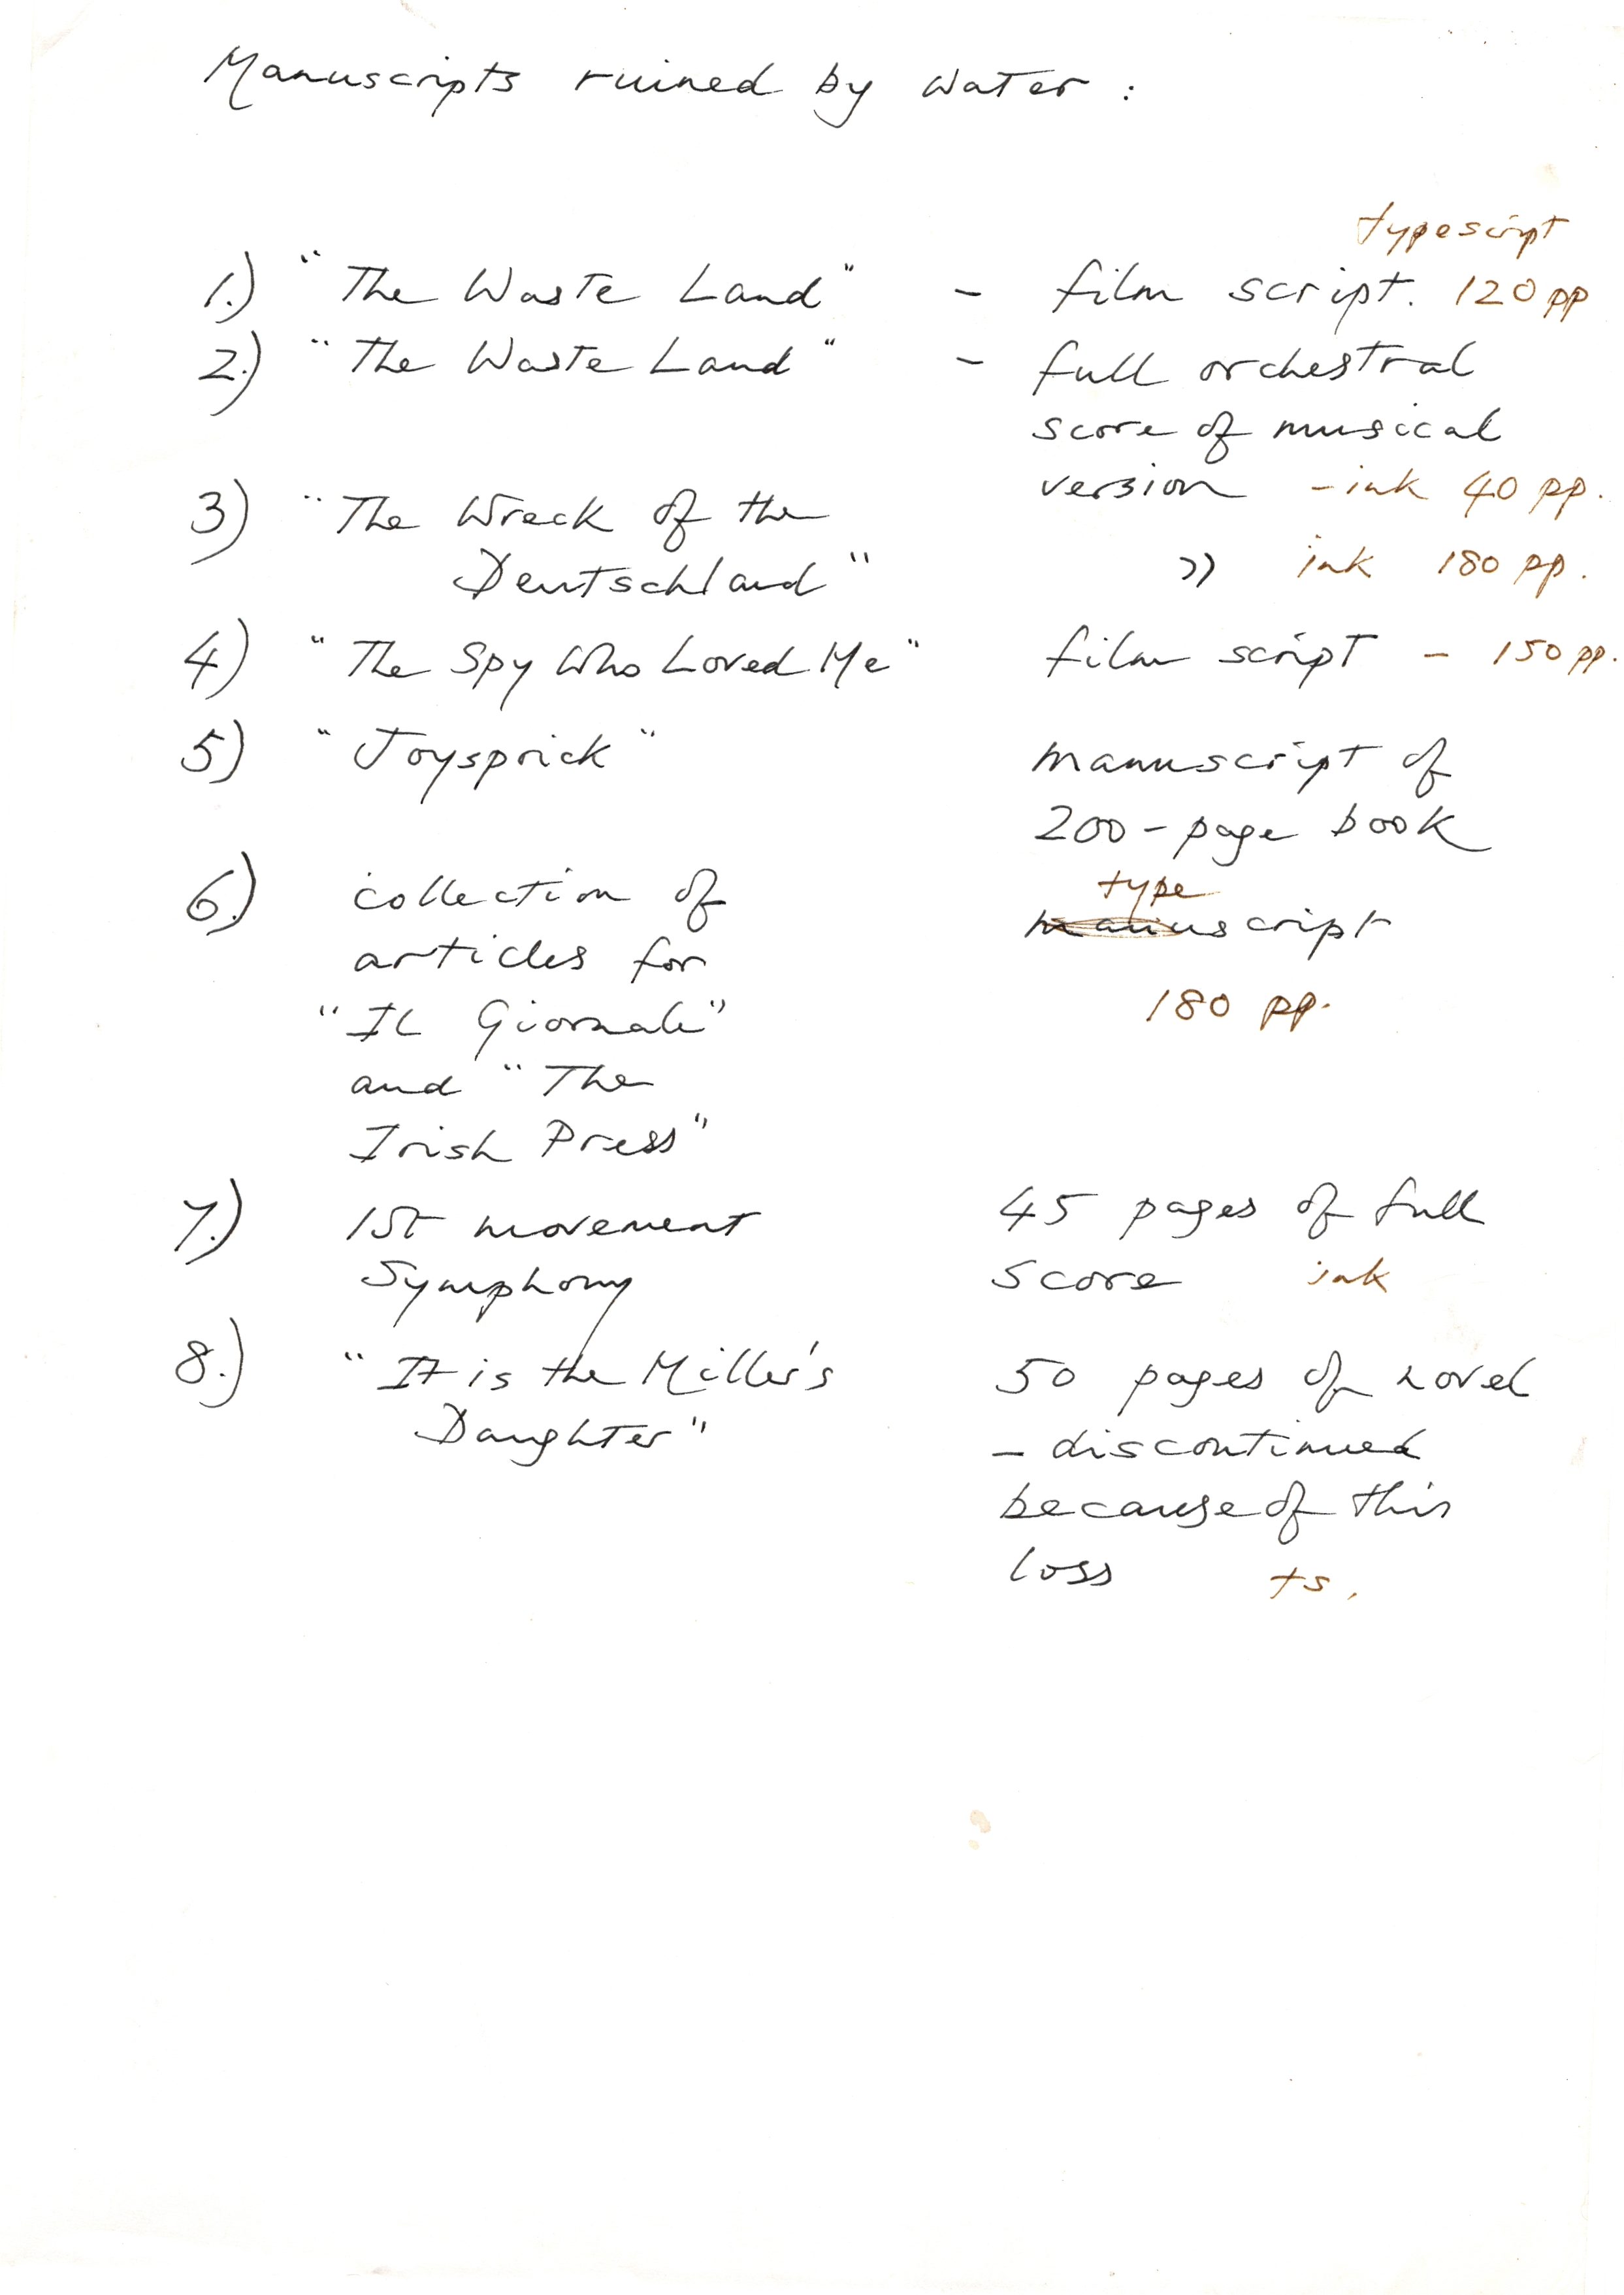 Manuscripts ruined by water :
typescript
1.) "The Waste Land" - film script. 120 pp
2.) "The Waste Land" - full orchestral
score of musical
version - ink 40 pp.
3) "The Wreck of the
Deutschland" " ink 180 pp.
4) "The Spy Who Loved Me" film script - 150 pp.
5) "Joysprick" manuscript of
200-page book
type
6.) collection of manuscript
articles for
"Il Giornale" 180 pp.
and "The
Irish Press"
7.) 1st movement 45 pages of full
Symphony score ink
8.) "It is the Miller's 50 pages of novel
Daughter" - discontinued
because of this
loss ts.